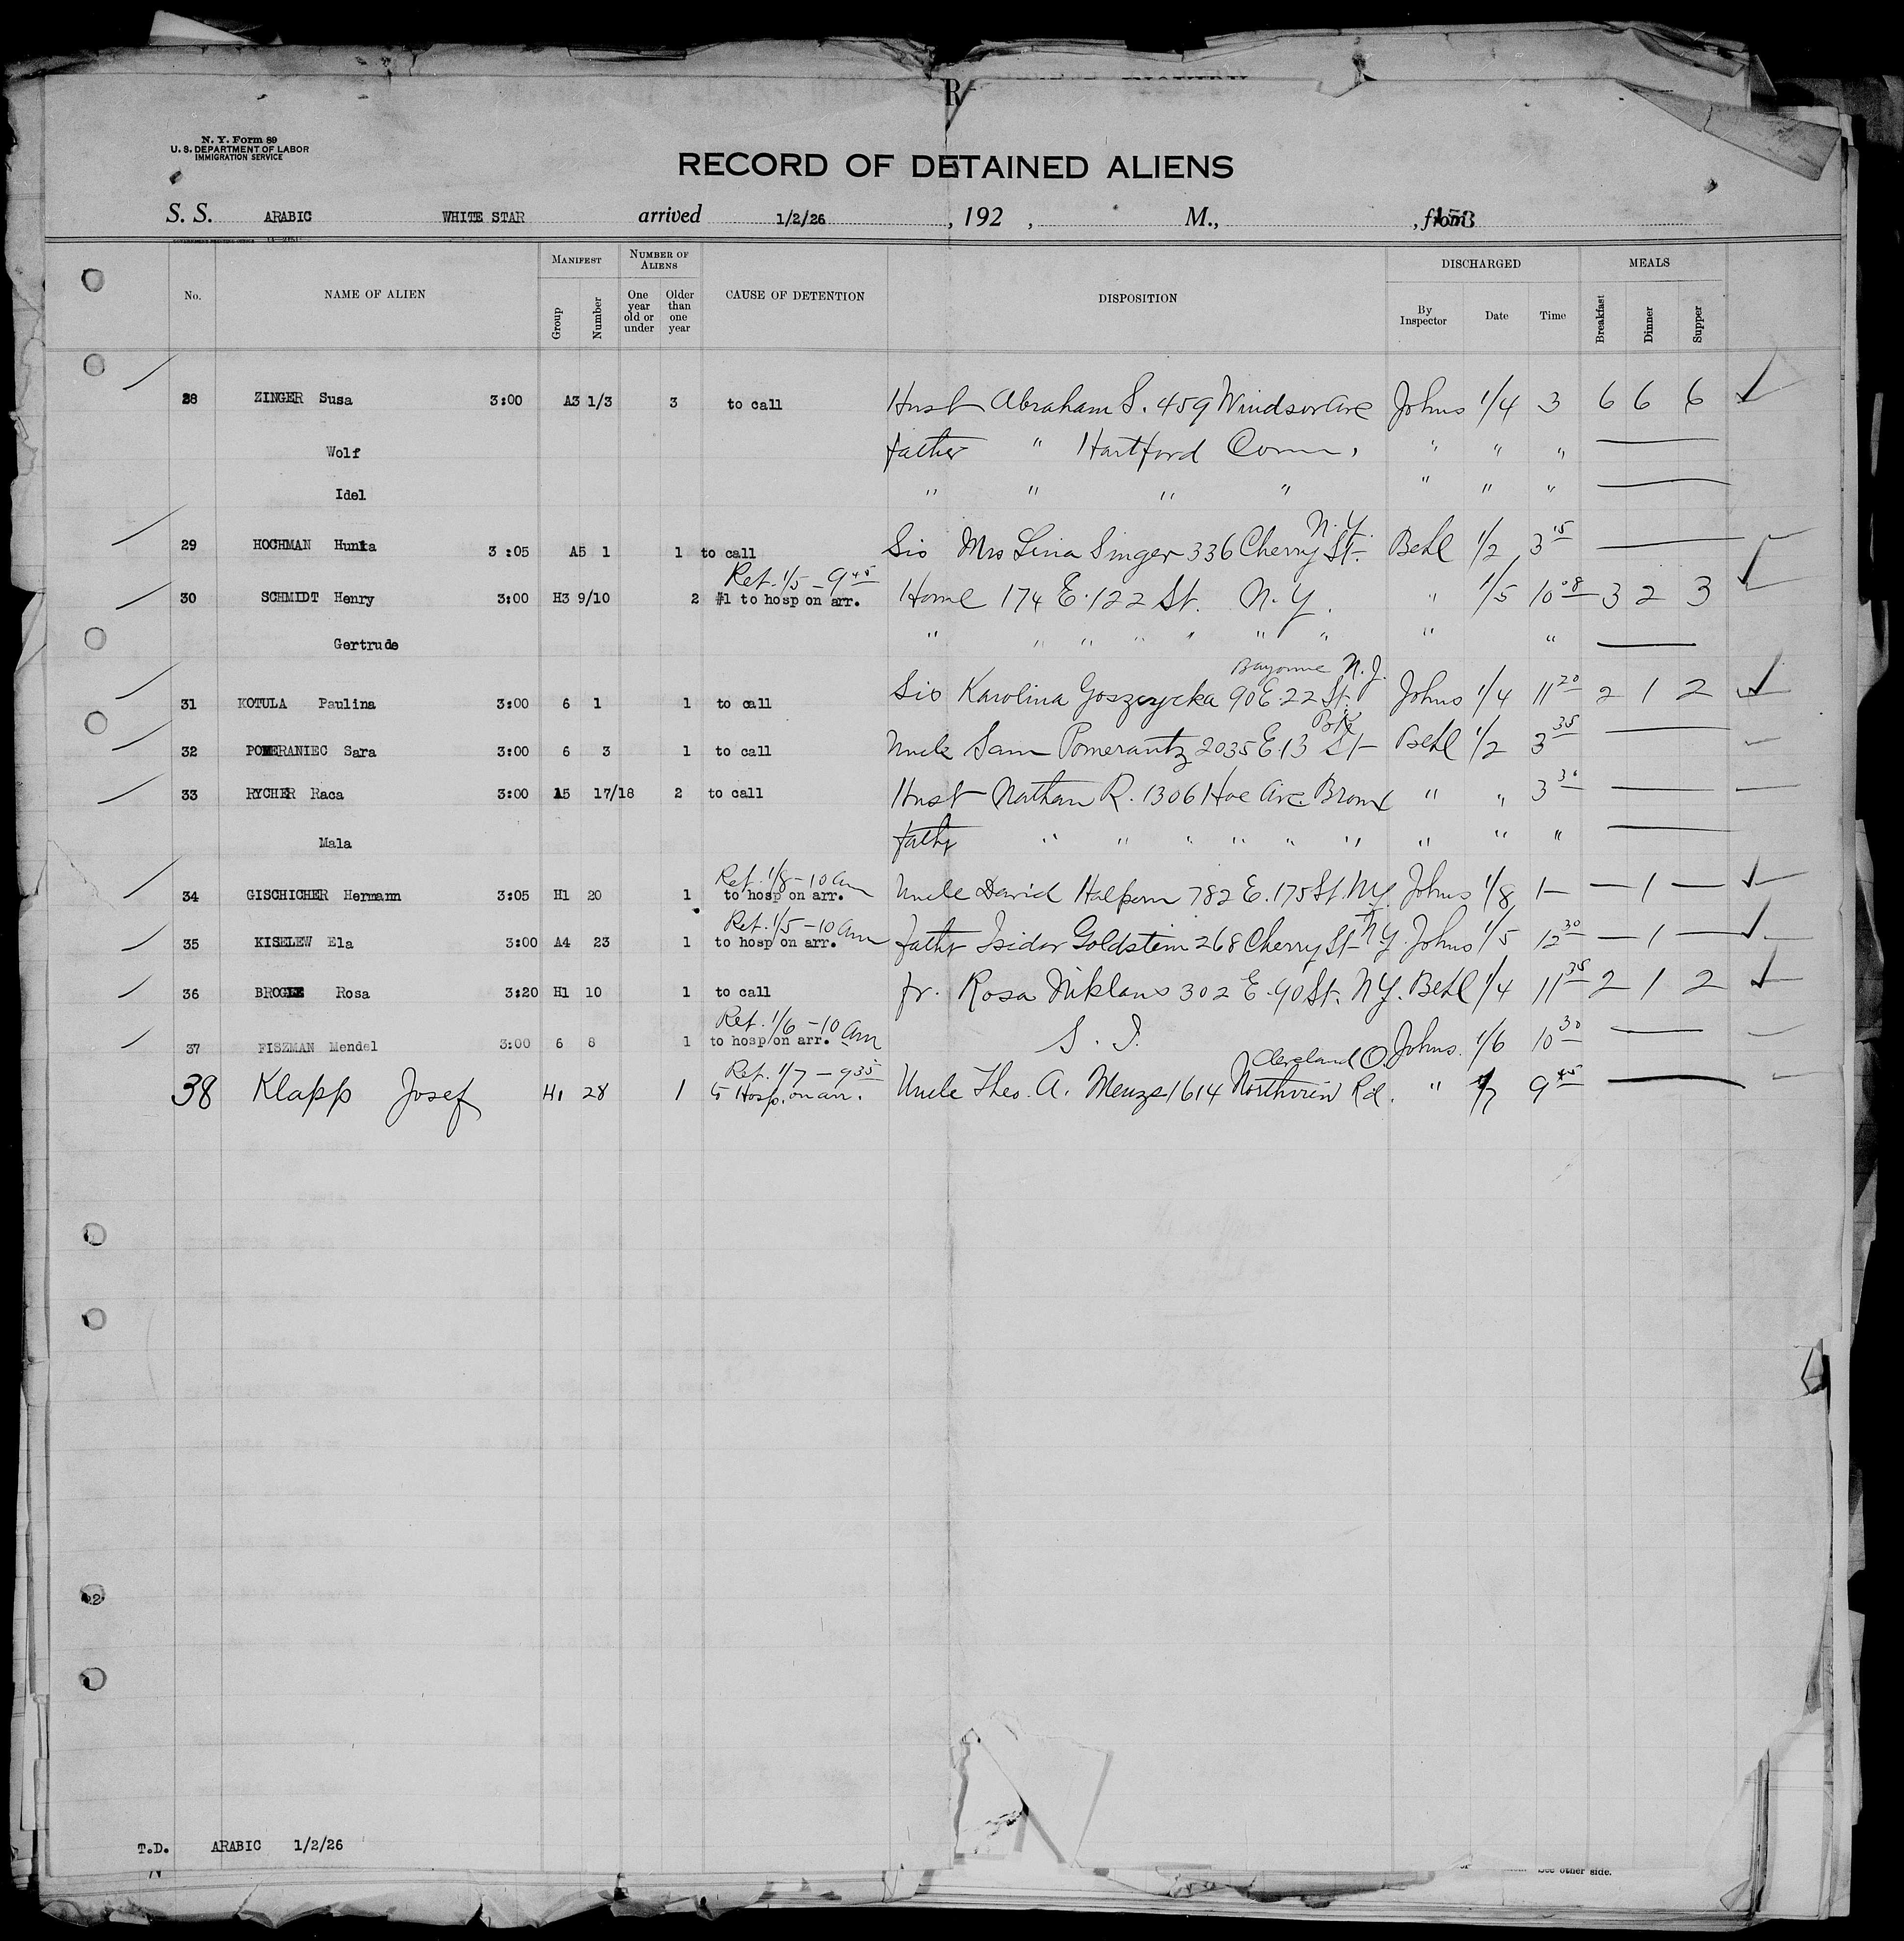 N. Y. Form 89
U. S. DEPARTMENT OF LABOR
IMMIGRATION SERVICE
RECORD OF DETAINED ALIENS
S. S. ARABIC WHITE STAR arrived 1/2/26, 192 , M., , from
No. NAME OF ALIEN MANIFEST Group Number NUMBER OF ALIENS One year old or under Older than one year CAUSE OF DETENTION DISPOSITION DISCHARGED By Inspector Date Time MEALS Breakfast Dinner Supper
28 ZINGER Susa 3:00 A3 1/3 3 to call Husb Abraham S. 459 Windsor Ave Johns 1/4 3 6 6 6
Wolf father " Hartford Conn. " " "
Idel " " " " " " "
N.Y.
29 HOCHMAN Hunka 3:05 A5 1 1 to call Sis Mrs Lina Singer 336 Cherry St. Behl 1/2 3 15
Ret. 1/5 - 9 45
30 SCHMIDT Henry 3:00 H3 9/10 2 #1 to hosp on arr. Home 174 E. 122 St. N.Y. " 1/5 10 08 3 2 3
Gertrude " " " " " " " " "
Bayonne N.J.
31 KOTULA Paulina 3:00 6 1 1 to call Sis Karolina Goszczycka 90 E. 22 St. Johns 1/4 11 20 2 1 2
Bk
32 POMERANIEC Sara 3:00 6 3 1 to call Uncle Sam Pomerantz 2035 E. 13 St Behl 1/2 3 35
33 RYCHER Raca 3:00 A5 17/18 2 to call Husb Nathan R. 1306 Hoe Ave. Bronx " " 3 30
Mala fathr " " " " " " " " "
Ret. 1/8 - 10 am
34 GISCHICHER Hermann 3:05 H1 20 1 to hosp on arr. Uncle David Halpern 782 E. 175 St. N.Y. Johns 1/8 1 — — 1 —
Ret. 1/5 - 10 am
35 KISELEW Ela 3:00 A4 23 1 to hosp on arr. fathr Isidor Goldstein 268 Cherry St N.Y. Johns 1/5 12 30 — 1 —
36 Rosa 3:20 H1 10 1 to call fr. Rosa Niklaus 302 E. 90 St. N.Y. Behl 1/4 11 35 2 1 2
Ret. 1/6 - 10 am
37 FISZMAN Mendel 3:00 6 8 1 to hosp on arr. S. I. Johns. 1/6 10 30
Ret. 1/7 - 9 35 Cleveland O.
38 Klapp Josef H1 28 1 to Hosp. on arr. Uncle Theo. A. Menze 1614 Northview Rd. " 1/7 9 45
T.D. ARABIC 1/2/26
See other side.